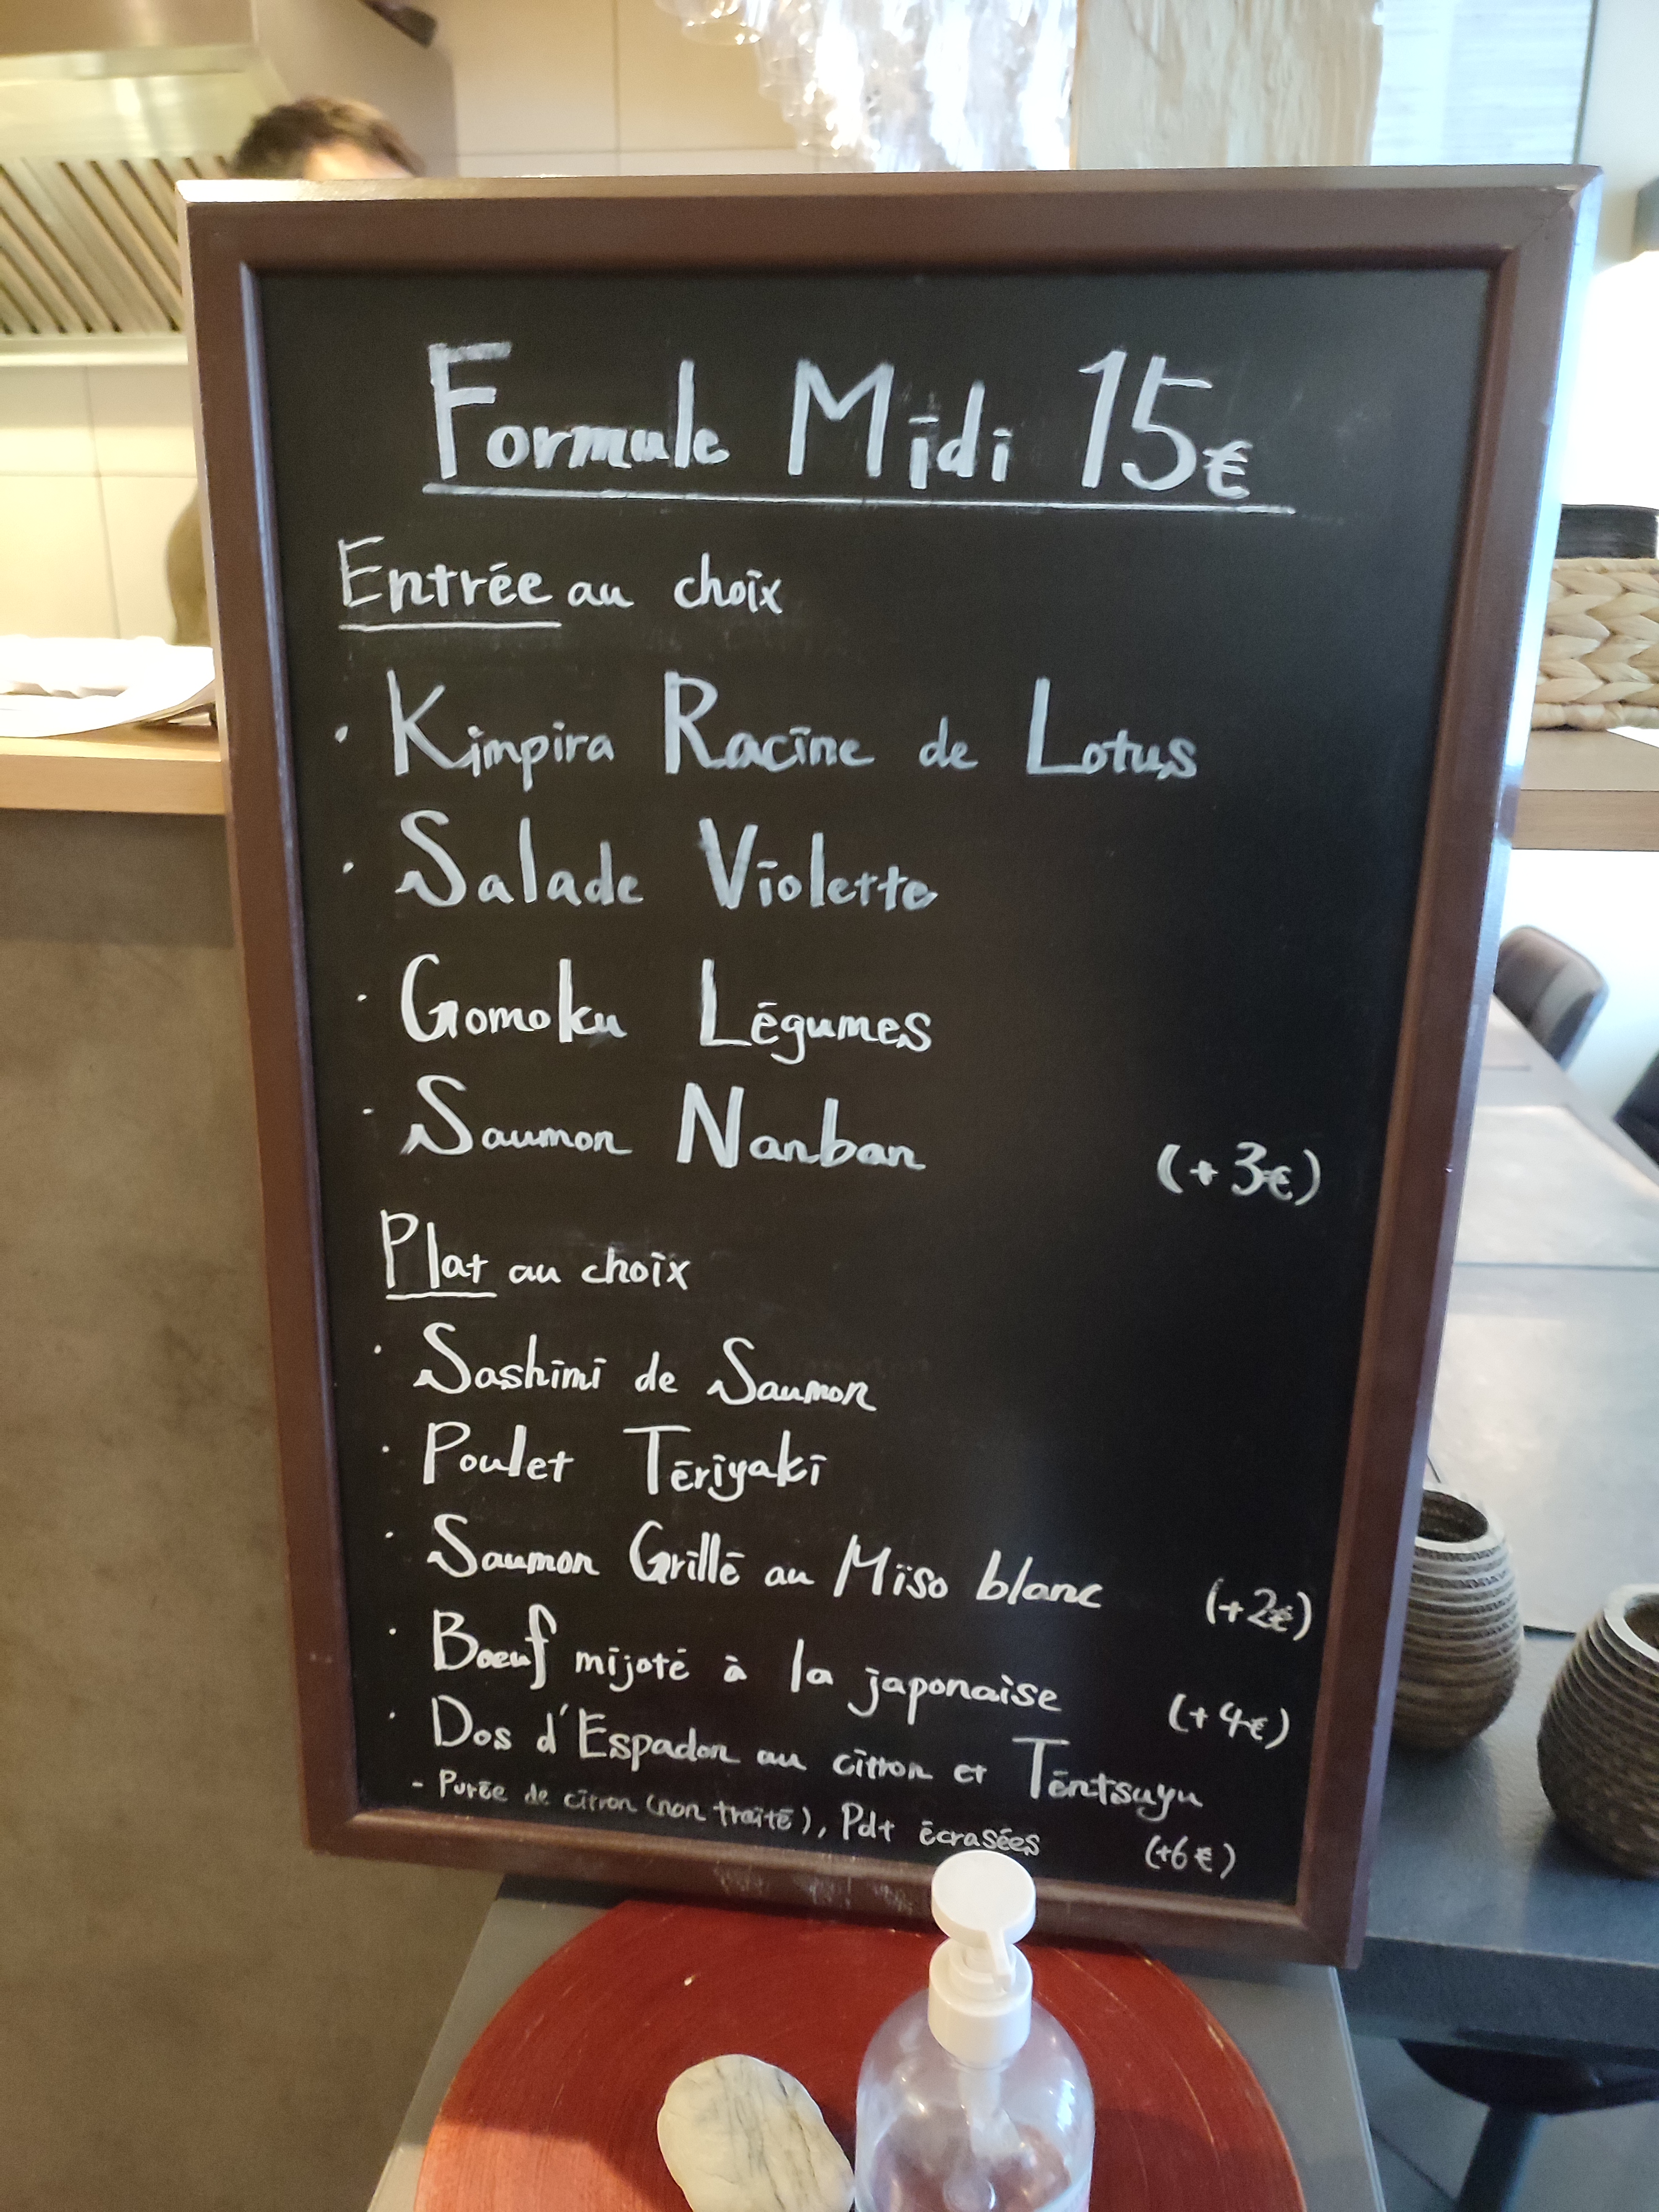 Formule Midi 15€
Entrée au choix
· Kimpira Racine de Lotus
· Salade Violette
· Gomoku Légumes
· Saumon Nanban (+3€)
Plat au choix
· Sashimi de Saumon
· Poulet Tériyaki
· Saumon Grillé au Miso blanc (+2€)
· Bœuf mijoté à la japonaise (+4€)
· Dos d'Espadon au citron et Tentsuyu
- Purée de citron (non traité), Pdt écrasées (+6€)